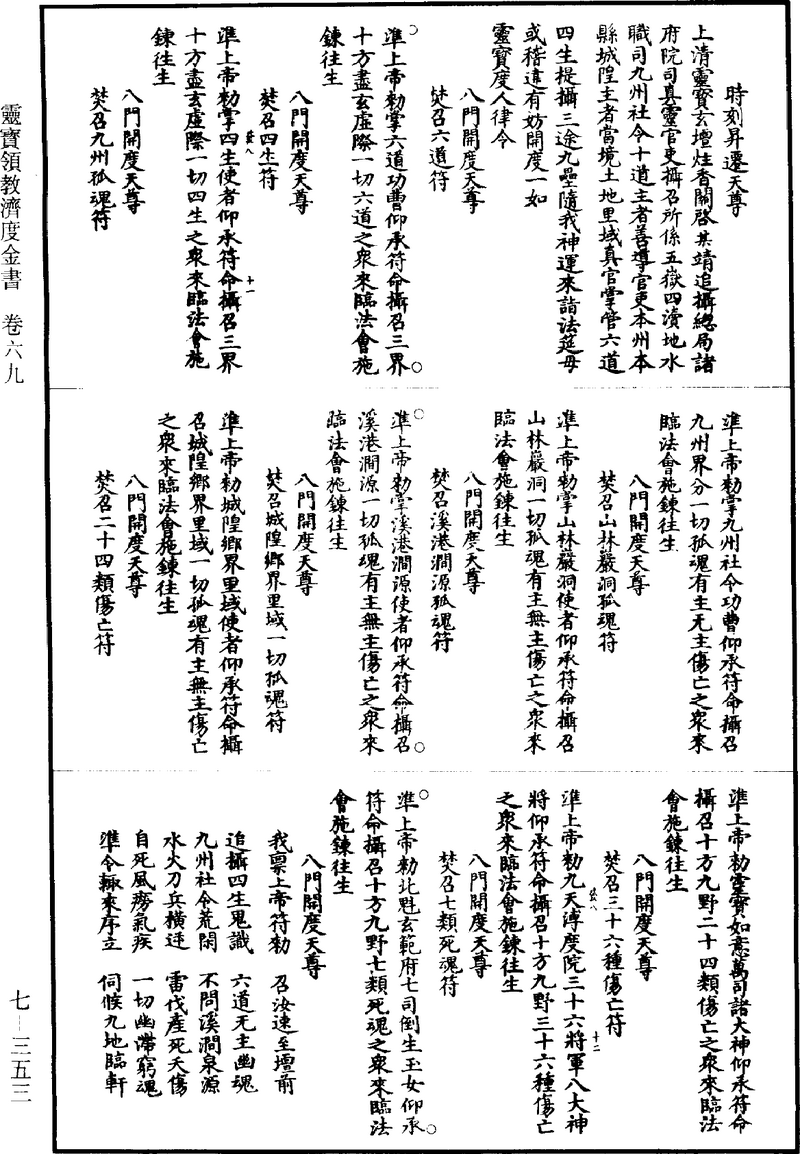 時刻昇遷天尊
上清靈寶玄壇炷香關啓某靖追攝總局諸
府院司真靈官吏攝召所係五嶽四瀆地水
職司九州社令十道主者善導官吏本州本
縣城隍主者當境土地里域真官掌管六道
四生提攝三途九壘隨我神運來詣法筵毋
或稽違有妨開度一如
靈寶度人律令
八門開度天尊
焚召六道符
準上帝勑掌六道功曹仰承符命攝召三界
十方盡玄虛際一切六道之衆來臨法會施
鍊往生
八門開度天尊
焚召四生符
準上帝勑掌四生使者仰承符命攝召三界
十方盡玄虛際一切四生之衆來臨法會施
鍊往生
八門開度天尊
焚召九州孤魂符
準上帝勑掌九州社令功曹仰承符命攝召
九州界分一切孤魂有主无主傷亡之衆來
臨法會施鍊往生
八門開度天尊
焚召山林巖洞孤魂符
準上帝勑掌山林巖洞使者仰承符命攝召
山林巖洞一切孤魂有主無主傷亡之衆來
臨法會施鍊往生
八門開度天尊
焚召溪港澗源孤魂符
準上帝勑掌溪港澗源使者仰承符命攝召
溪港澗源一切孤魂有主無主傷亡之衆來
臨法會施鍊往生
八門開度天尊
焚召城隍鄉界里域一切孤魂符
準上帝勑城隍鄉界里域使者仰承符命攝
召城隍鄉界里域一切孤魂有主無主傷亡
之衆來臨法會施鍊往生
八門開度天尊
焚召二十四類傷亡符
準上帝勑靈寶如意萬司諸大神仰承符命
攝召十方九野二十四類傷亡之衆來臨法
會施鍊往生
八門開度天尊
焚召三十六種傷亡符
準上帝勑九天溥度院三十六將軍八大神
將仰承符命攝召十方九野三十六種傷亡
之衆來臨法會施鍊往生
八門開度天尊
焚召七類死魂符
準上帝勑北魁玄範府七司倒生玉女仰承
符命攝召十方九野七類死魂之衆來臨法
會施鍊往生
八門開度天尊
我禀上帝符勑 召汝速至壇前
追攝四生鬼識 六道无主幽魂
九州社令荒閑 不問溪澗泉源
水火刀兵橫逆 雷伐產死夭傷
自死風癆氣疾 一切幽滯窮魂
準令輙來序立 伺候九地臨軒
靈寶領教濟度金書 卷六九
七—三五三